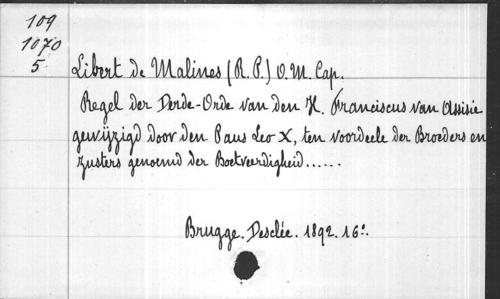 109
1070
5
Libert de Malines (R. P.) O. M. Cap.
Regel der Derde-Orde van den H. Franciscus van Assisie
gewijzigd door den Paus Leo X, ten voordeele der Broeders en
zusters genoemd der Boetveerdigheid......
Brugge. Desclée. 1892. 16°.